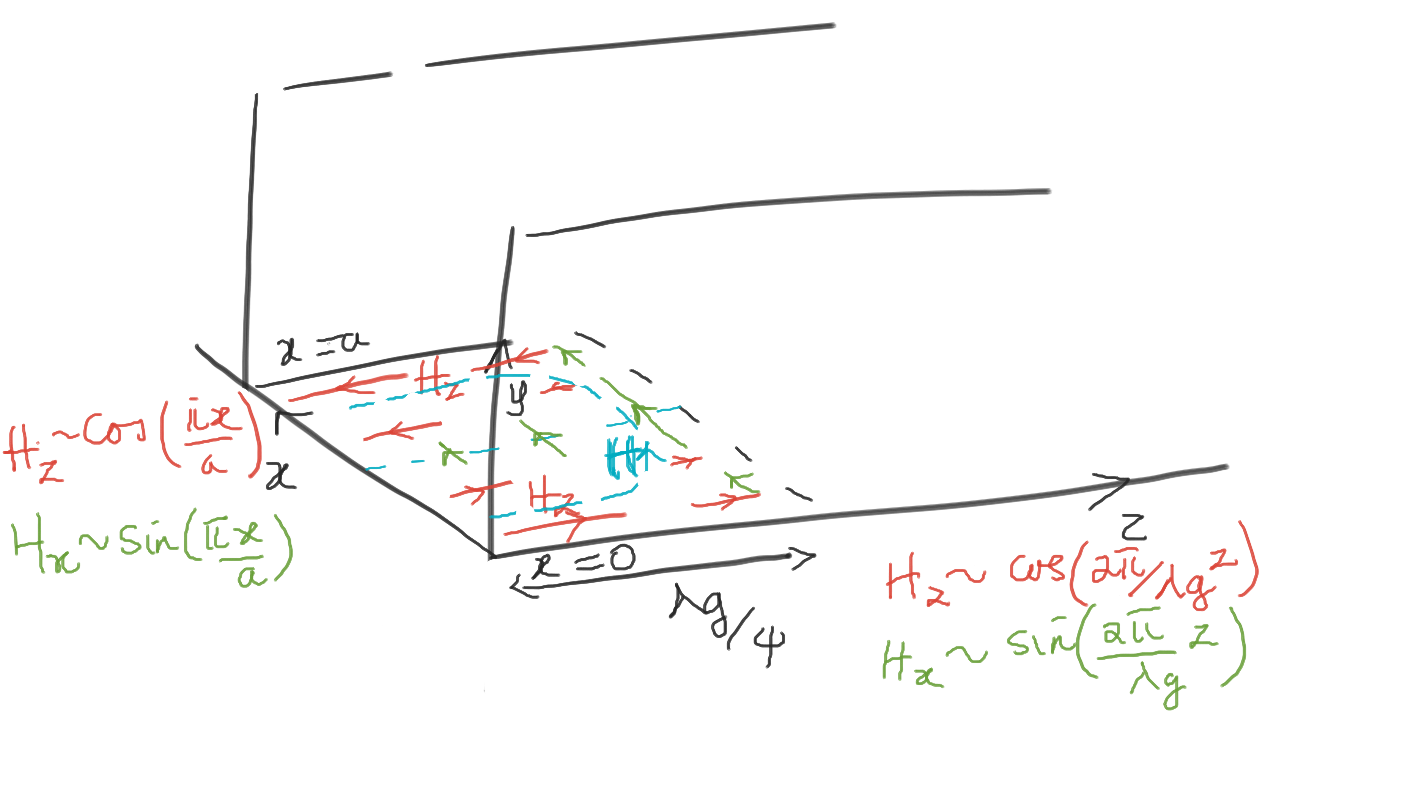 x = a
H_z
y
H_z ~ cos(πx/a)
x
H_x ~ sin(πx/a)
H
H_z
x = 0
z
λg/4
H_z ~ cos(2π/λg z)
H_x ~ sin(2π/λg z)